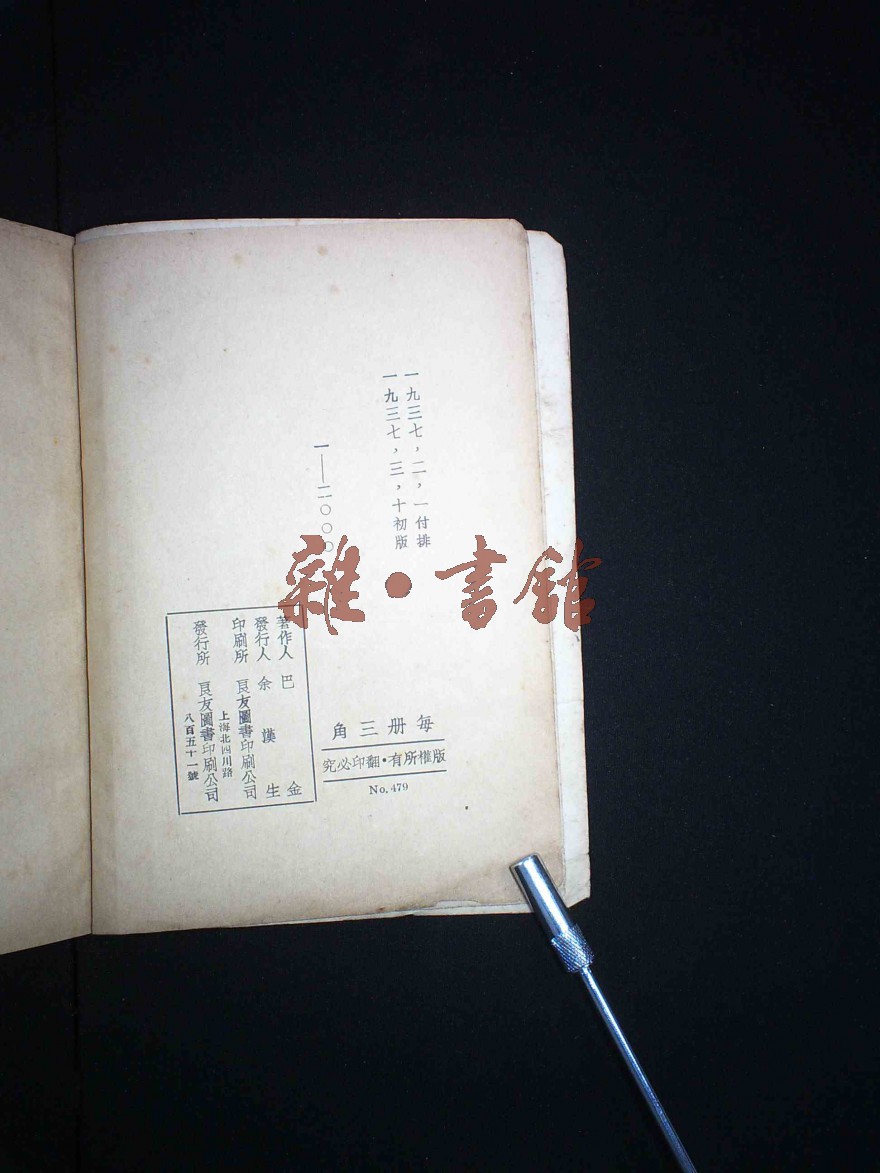 一九三七，二，一付排
一九三七，三，十初版
一——二〇〇〇
每册三角
版權所有・翻印必究
No. 479
著作人 巴金
發行人 余漢生
印刷所 良友圖書印刷公司
上海北四川路
發行所 良友圖書印刷公司
八百五十一號
雜・書館